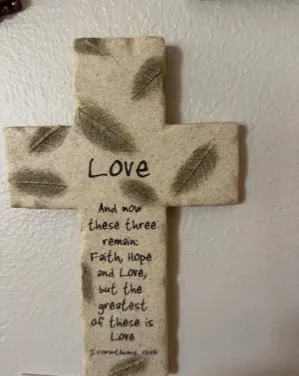 Love
And now
these three
remain:
Faith, Hope
and Love,
but the
greatest
of these is
Love
1 Corinthians